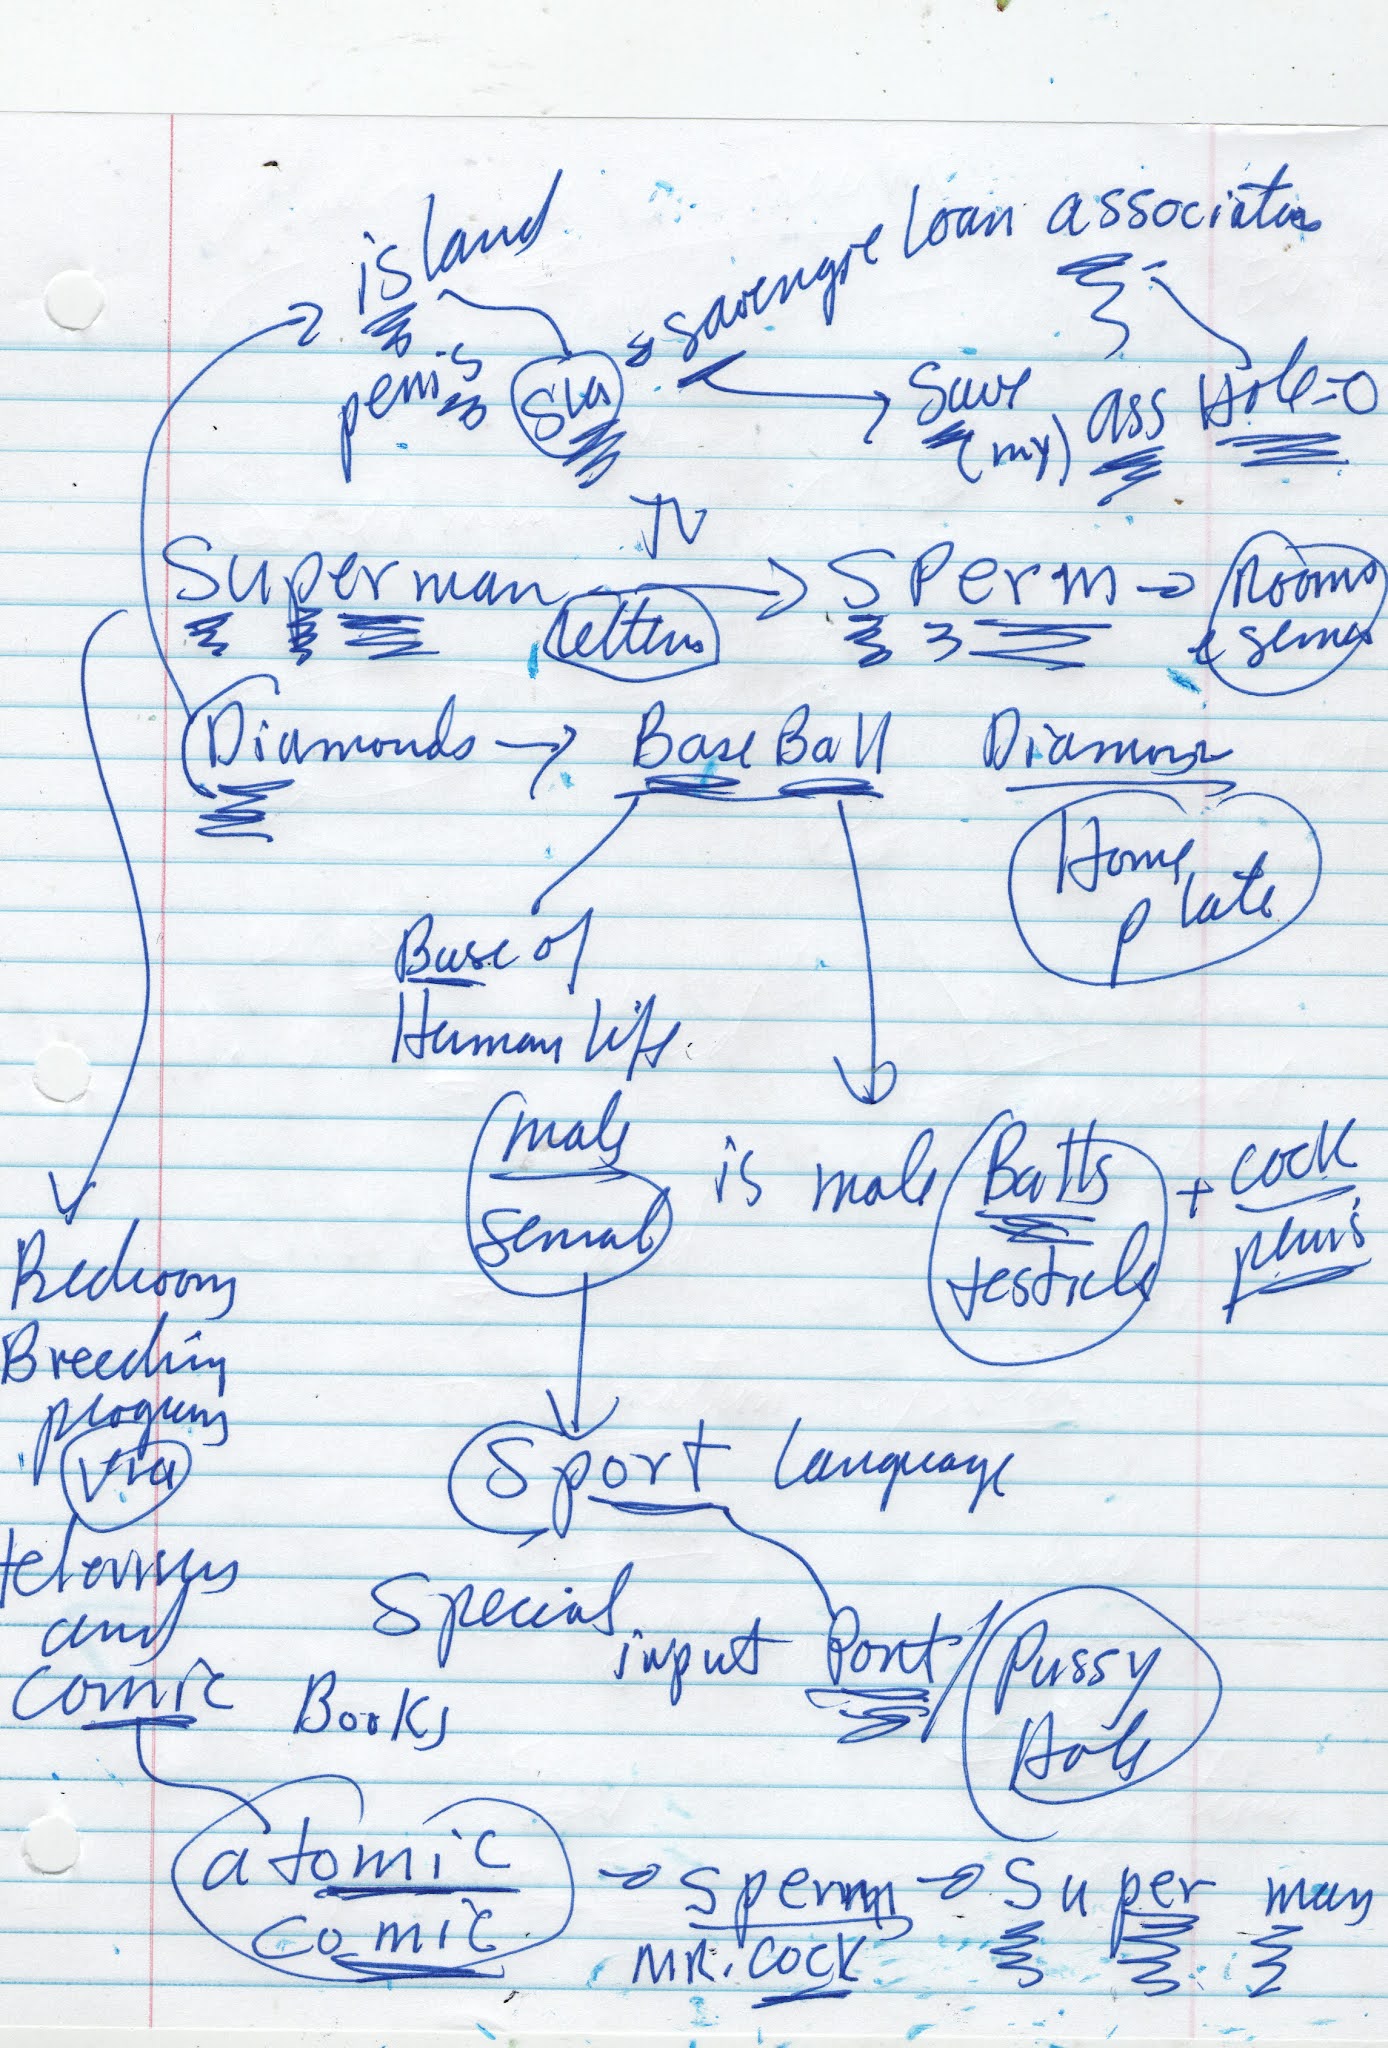 island
loan
penis
Save
(my) ass Hole=0
TV
Superman
SPerm
Rooms
letters
Diamonds
BaseBall
Home
plate
Base of
Human life
male
is male
Balls
+ cock
penis
testicle
Bedroom
Breeding
program
via
Sport language
and
Special
input Port / Pussy
Hole
comic Books
atomic
comic
Sperm
Super man
MR. COCK